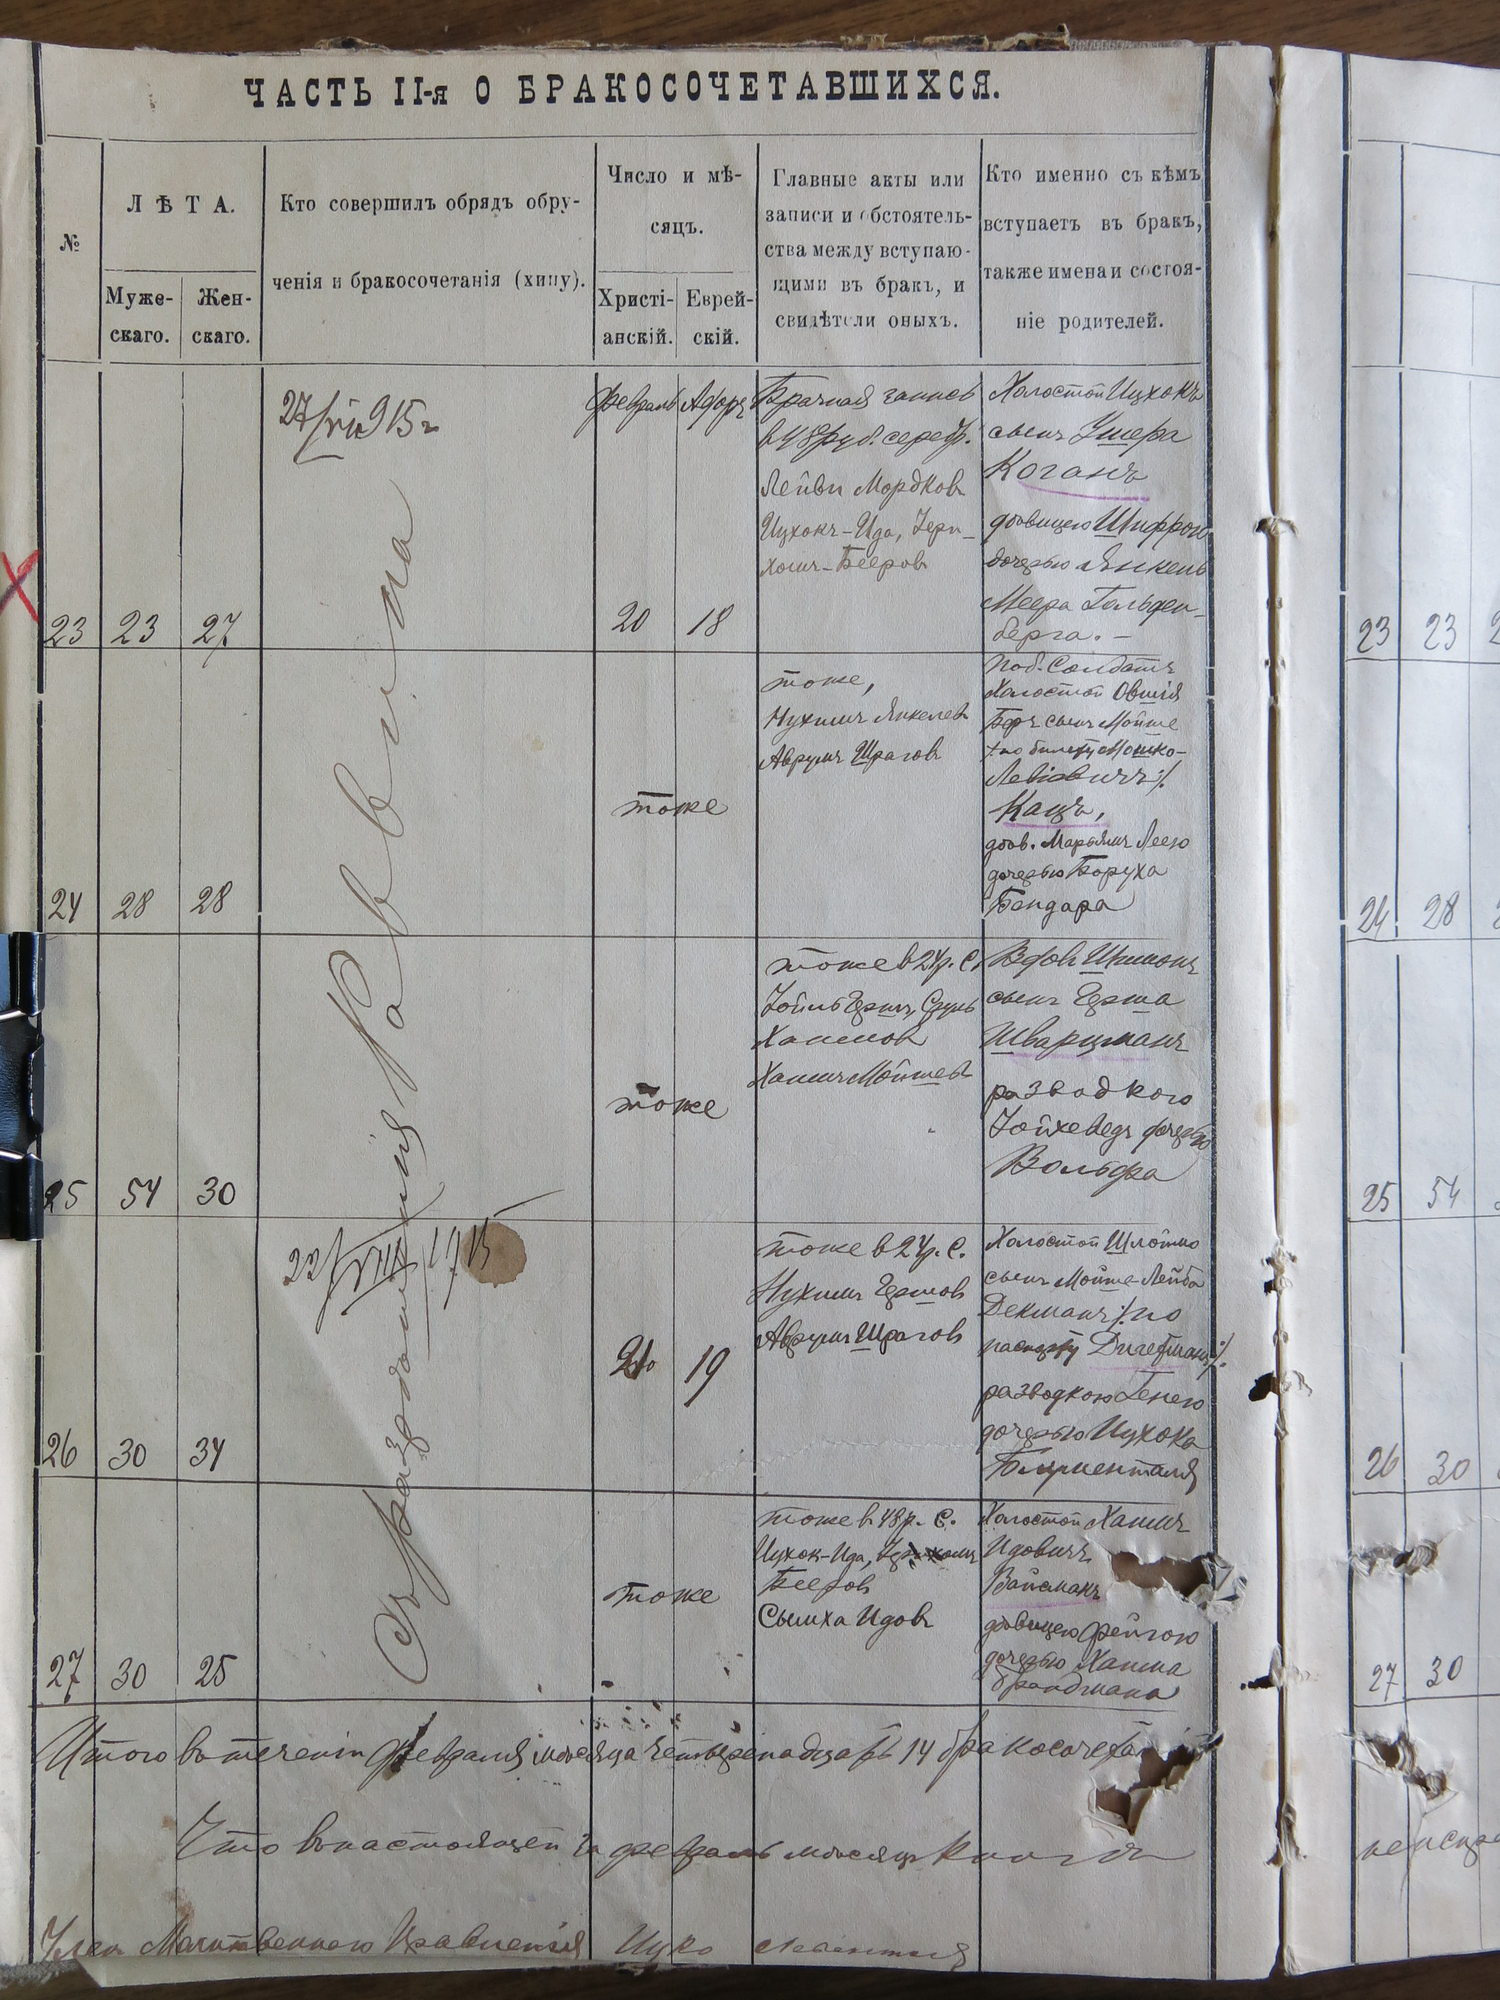 ЧАСТЬ II-я О БРАКОСОЧЕТАВШИХСЯ.
№
ЛѢТА.
Муже-
скаго.
Жен-
скаго.
Кто совершилъ обрядъ обру-
ченія и бракосочетанія (хипу).
Число и мѣ-
сяцъ.
Христі-
анскій.
Еврей-
скій.
Главные акты или
записи и обстоятель-
ства между вступаю-
щими въ бракъ, и
свидѣтели оныхъ.
Кто именно съ кѣмъ
вступаетъ въ бракъ,
также имена и состоя-
ніе родителей.
23 23 27
27/VII 915 г
Февраль Адоръ
20 18
Брачная запись
в 48 руб. серебр.
Лейви Мордковъ
Ицхокъ-Ида,
Холостой Ицхокъ
сынъ Ушера
Коганъ
дѣвицею Шифрою
дочерью Янкель
Меера Гольден-
берга. –
24 28 28
тоже
тоже,
Нухимъ Янкелевъ
Аврумъ Шраговъ
Холостой Овшія
Беръ сынъ Мойше
по билету Мошко-
Лейбовичъ
Кацъ,
дѣв. Марьямъ Леею
дочерью Боруха
Бендара
25 54 30
тоже
тоже в 24 р. С.
Хаимовъ
Хаимъ Мойшевъ
Вдовъ Шимонъ
сынъ Герша
Шварцманъ
разводкою
Іойхеведъ дочерью
Вольфа
26 30 34
22/VIII 1915
19
тоже в 24 р. С.
Нухимъ Гершовъ
Аврумъ Шраговъ
Холостой Шлойме
сынъ Мойше-Лейба
Декманъ по
паспорту
разводкою Генею
дочерью Ицхока
Блументаля
27 30 25
тоже
тоже в 48 р. С.
Ицхок-Ида,
Бееровъ
Сымха Идовъ
Холостой Хаимъ
Идовичъ
Вайсманъ
дѣвицею Фейгою
дочерью Хаима
Брандмана
Съ раввина
Итого въ теченіи Февраля мѣсяца четырнадцать 14 бракосочета
Что въ настоящей за февраль мѣсяцъ книгѣ
Члены Молитвеннаго Правленія Ицко
23 23
24 28
25 54
26 30
27 30